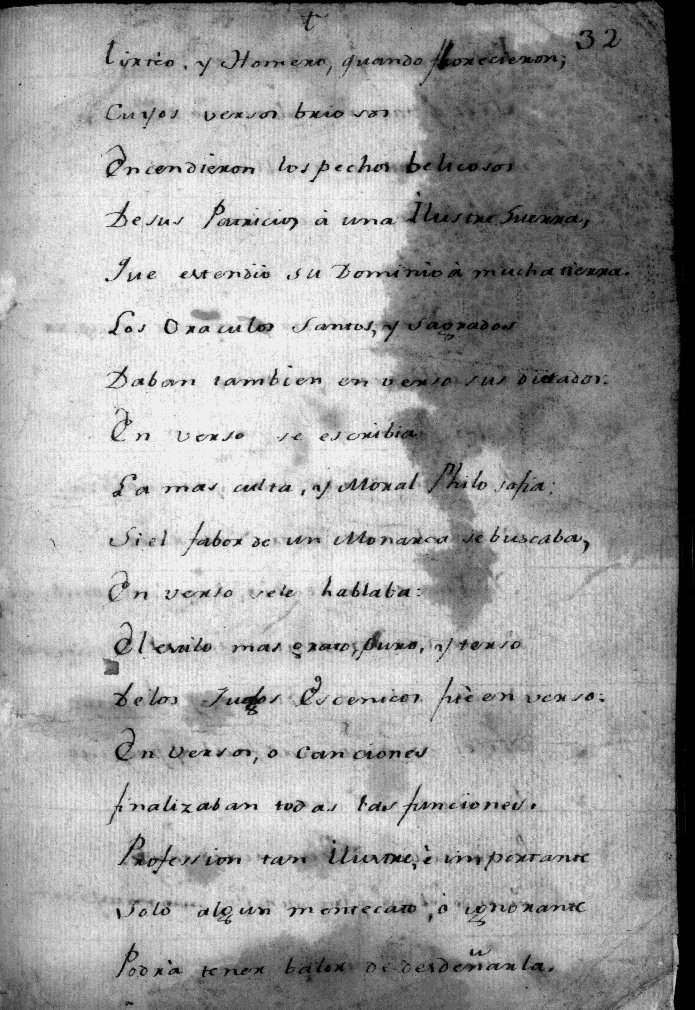 32
Tirtèo, y Homero, quando florecieron;
Cuyos versos briosos
Encendieron los pechos belicosos
De sus Patricios à una Ilustre Guerra,
Que extendiò su Dominio à mucha tierra.
Los Oraculos Santos, y Sagrados
Daban tambien en verso sus dictados:
En verso se escribia
La mas culta, y Moral Philosofia:
Si el fabor de un Monarca se buscaba,
En verso se le hablaba:
El estilo mas grato, puro, y terso
De los Juegos Escenicos fuè en verso:
En versos, o canciones
finalizaban todas las funciones.
Profession tan ilustre, è importante
Solo algun mentecato, ò ignorante
Podrà tener balor de desdeñarla.